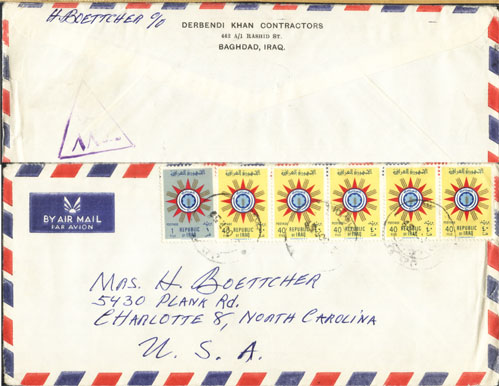 H. Boettcher c/o
DERBENDI KHAN CONTRACTORS
443 A/1 RASHID ST.
BAGHDAD, IRAQ.
BY AIR MAIL
PAR AVION
الجمهورية العراقية الجمهورية العراقية الجمهورية العراقية الجمهورية العراقية الجمهورية العراقية الجمهورية العراقية
REPUBLIC REPUBLIC REPUBLIC REPUBLIC REPUBLIC REPUBLIC
OF IRAQ OF IRAQ OF IRAQ OF IRAQ OF IRAQ OF IRAQ
40 ٤٠ 40 ٤٠ 40 ٤٠ 40 ٤٠ 40 ٤٠
MRS. H. BOETTCHER
5430 PLANK Rd.
CHARLOTTE 8, NORTH CAROLINA
U. S. A.